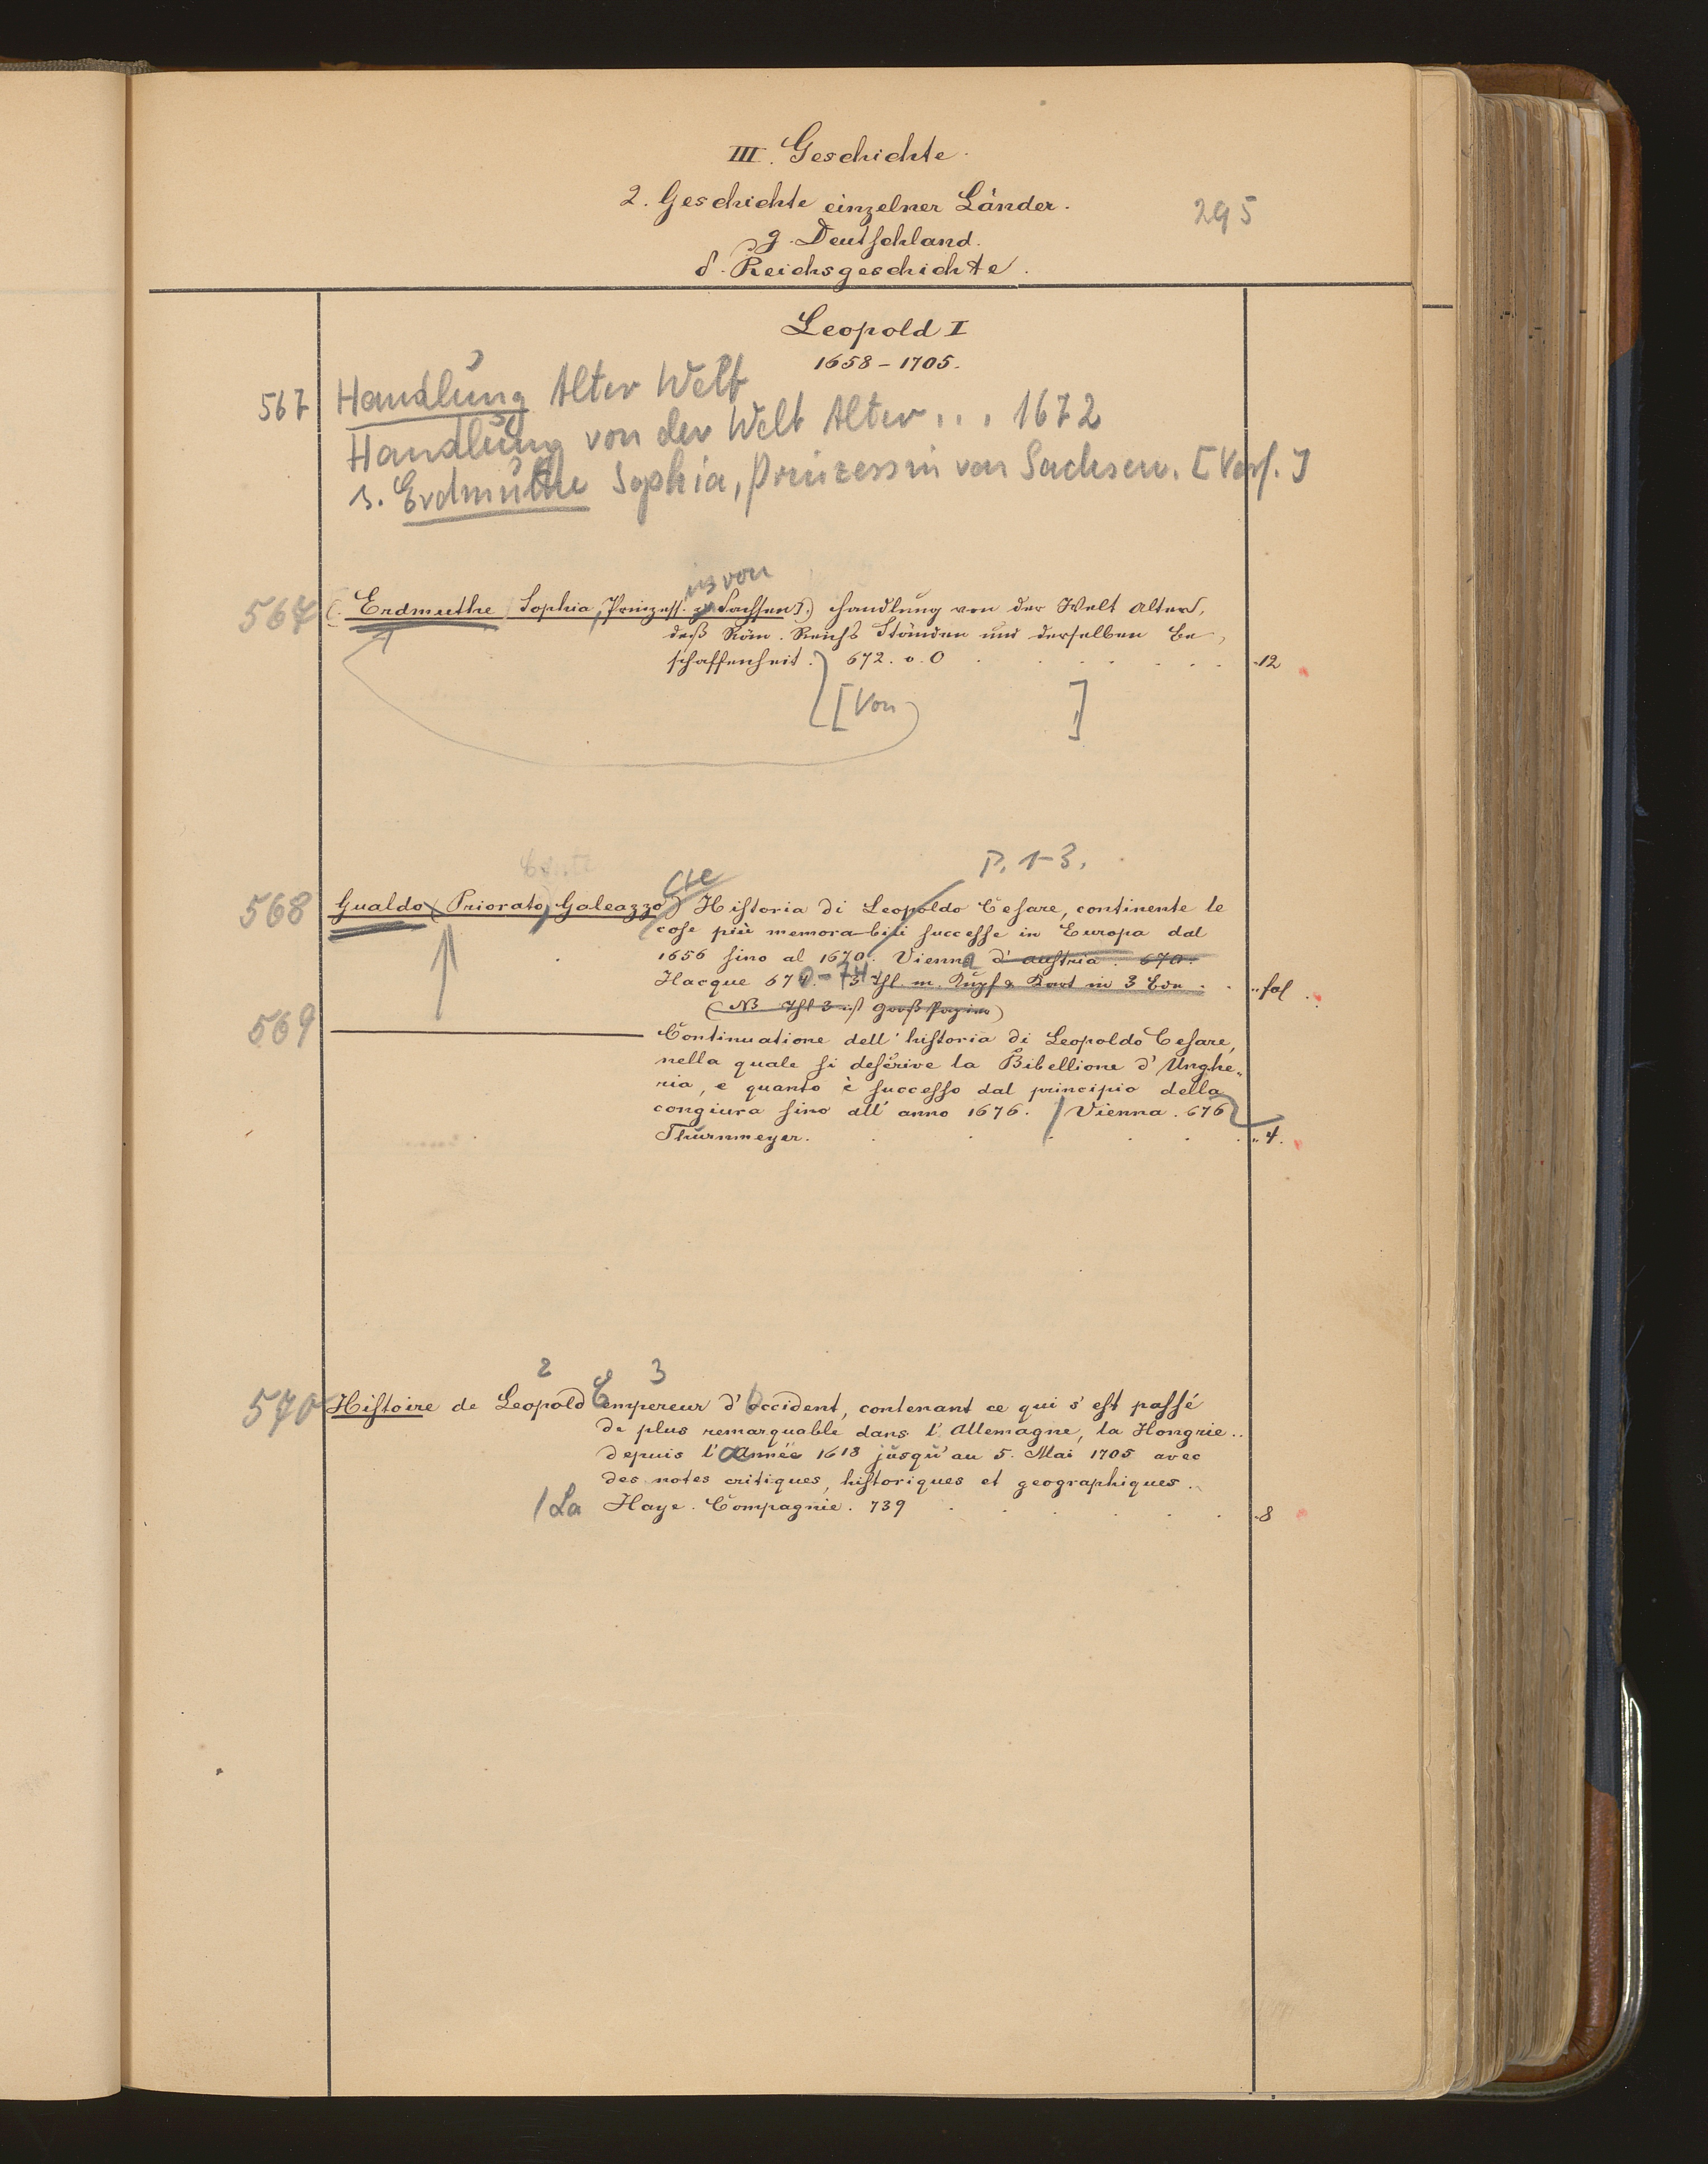 III. Geschichte.
2. Geschichte einzelner Länder.
295
g. Deutschland.
δ. Reichsgeschichte.
Leopold I
1658-1705.
567 Handlung Alter Welt
Handlung von der Welt Alter... 1672
s. Erdmuthe Sophia, Prinzessin von Sachsen. [Verf.]
in von
567 (Erdmuthe Sophia, Prinzess. z. Sachsen.) Handlung von der Welt Alter,
deß Röm. Reichs Ständen und derselben Be-
schaffenheit. 672. o. O 12
[Von ]
P. 1-3.
Conte
cte
568 Gualdo (Priorato, Galeazzo) Historia di Leopoldo Cesare, continente le
cose più memorabili successe in Europa dal
1656 sino al 1670. Vienna d'Austria. 670.
Hacque 670-74 3 Thl. m. Kupf & Kart in 3 Bdn. fol.
(NB Thl 3 ist Groß Papier)
569 Continuatione dell' historia di Leopoldo Cesare,
nella quale si descrive la Ribellione d' Unghe-
ria, e quanto è successo dal principio della
congiura sino all' anno 1676. / Vienna. 676
Thurnmeyer. 4.
2 3
570 Histoire de Leopold Empereur d'Occident, contenant ce qui s'est passé
de plus remarquable dans l'Allemagne, la Hongrie..
depuis l'Année 1618 jusqu'au 5. Mai 1705 avec
des notes critiques, historiques et geographiques.
/La Haye. Compagnie. 739 8